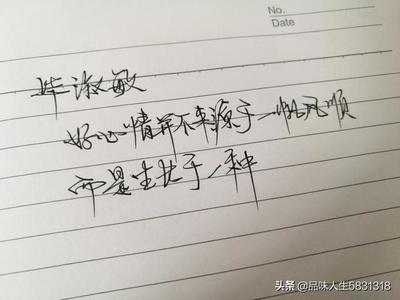 No.
Date
毕淑敏
好心情并不来源于一帆风顺
而是生长于一种
头条 @品味人生5831318